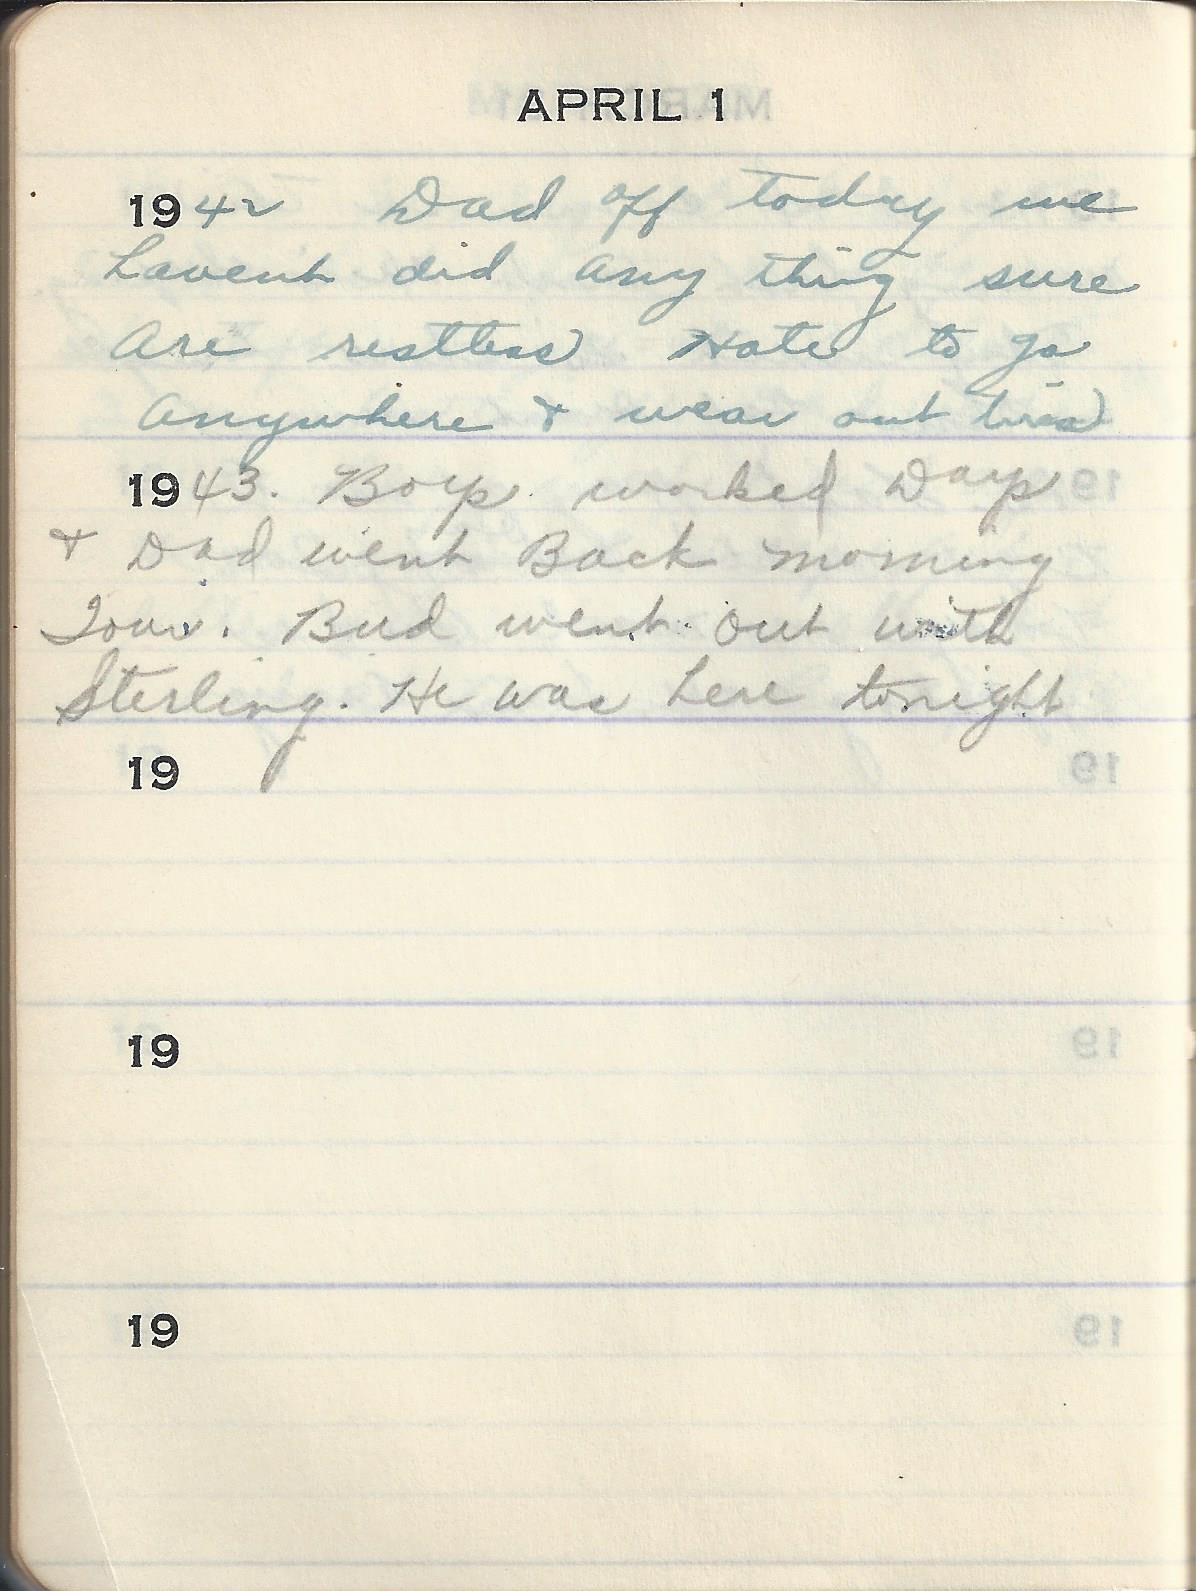 APRIL 1
1942 Dad off today we
havent did any thing sure
are restless Hate to go
anywhere & wear out tires
1943. Boys worked Days
& Dad went Back morning
Tour. Bud went out with
Sterling. He was here tonight
19
19
19